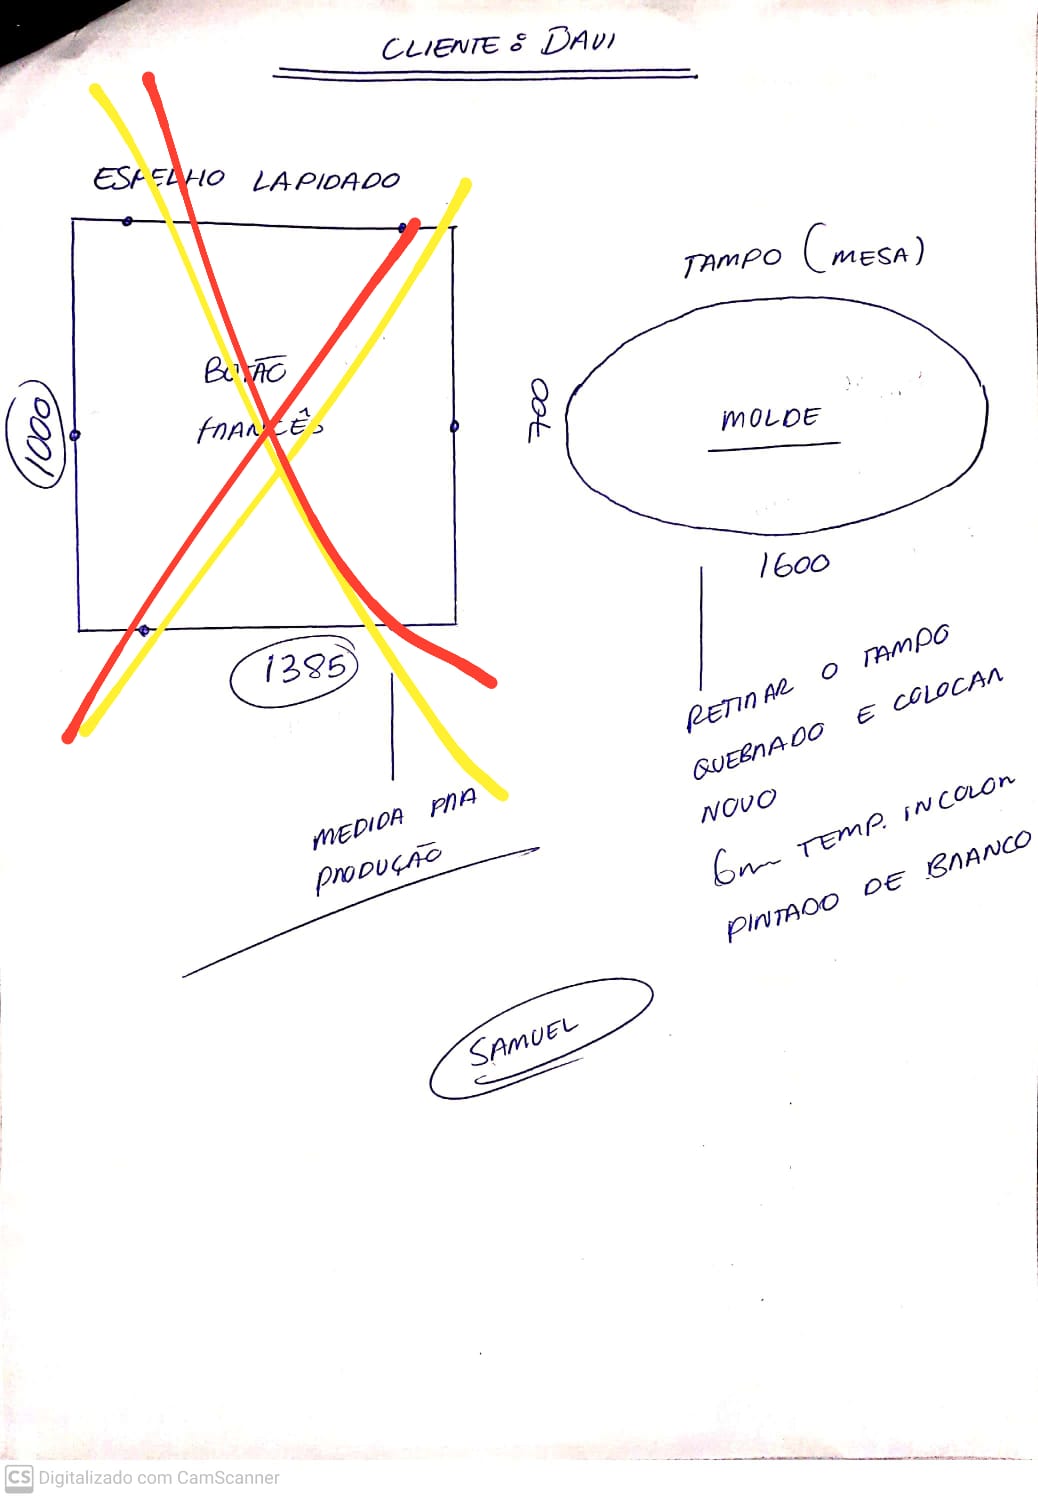 CLIENTE: DAVI
ESPELHO LAPIDADO
BOTÃO
FRANCÊS
1000
1385
MEDIDA PRA
PRODUÇÃO
TAMPO (MESA)
700
MOLDE
1600
RETIRAR O TAMPO
QUEBRADO E COLOCAR
NOVO
6mm TEMP. INCOLOR
PINTADO DE BRANCO
SAMUEL
CS Digitalizado com CamScanner